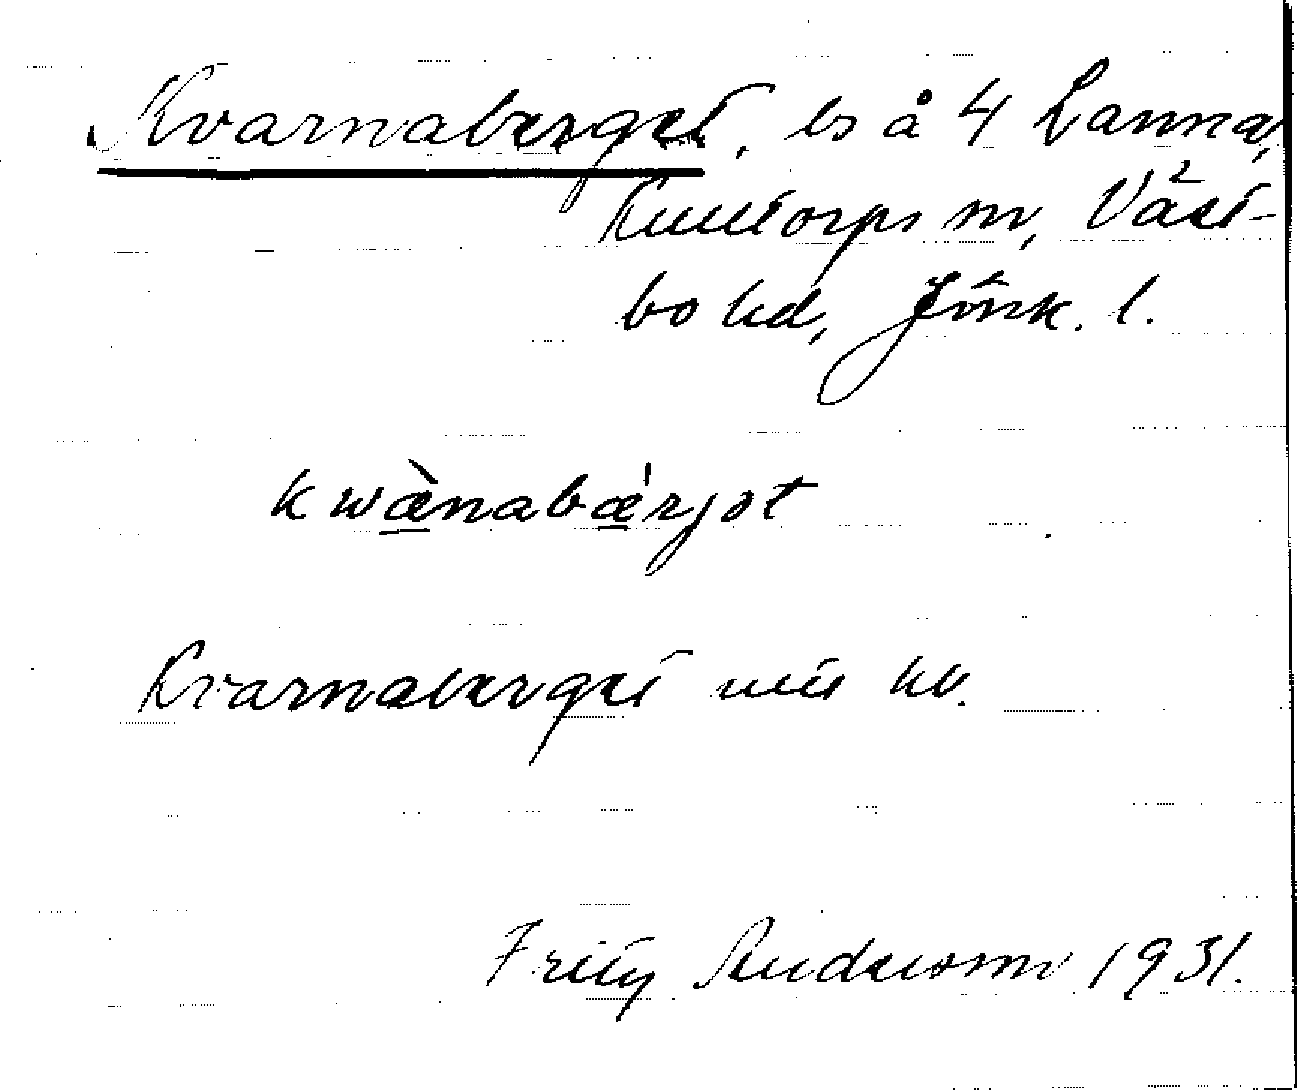 Kvarnaberget, ls å 4 Lanna,
Kulltorps sn, Väst-
bo hd, Jönk. l.
kwæ̀nabǽrjət
Kvarnaberget utt kv.
Fritz Andersson 1931.